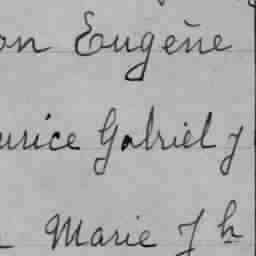 on Eugène
urice Gabriel J
Marie J h